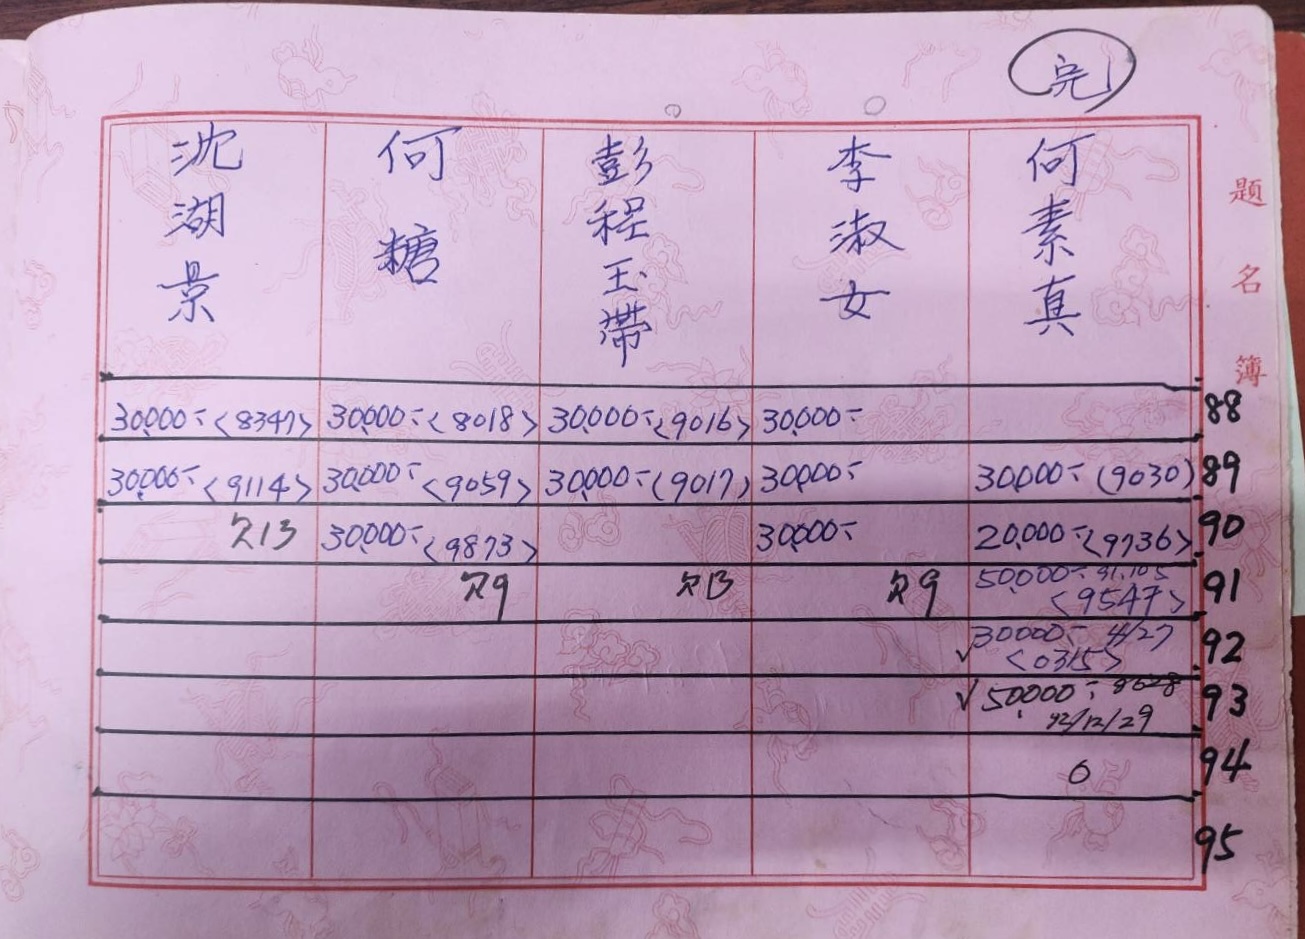 完
題名簿
何素真
李淑女
彭程玉帶
何糖
沈湖景
30,000- <8347> 30,000- <8018> 30,000- <9016> 30,000- 88
30,000- <9114> 30,000- <9059> 30,000- (9017) 30,000- 30,000- (9030) 89
欠13 30,000- <9873> 30,000- 20,000- <9736> 90
欠9 欠13 欠9 50,000- 91.10.5 91
<9547>
✓30000- 4/27 92
<0315>
✓50,000- 8628 93
92/12/29
0 94
95